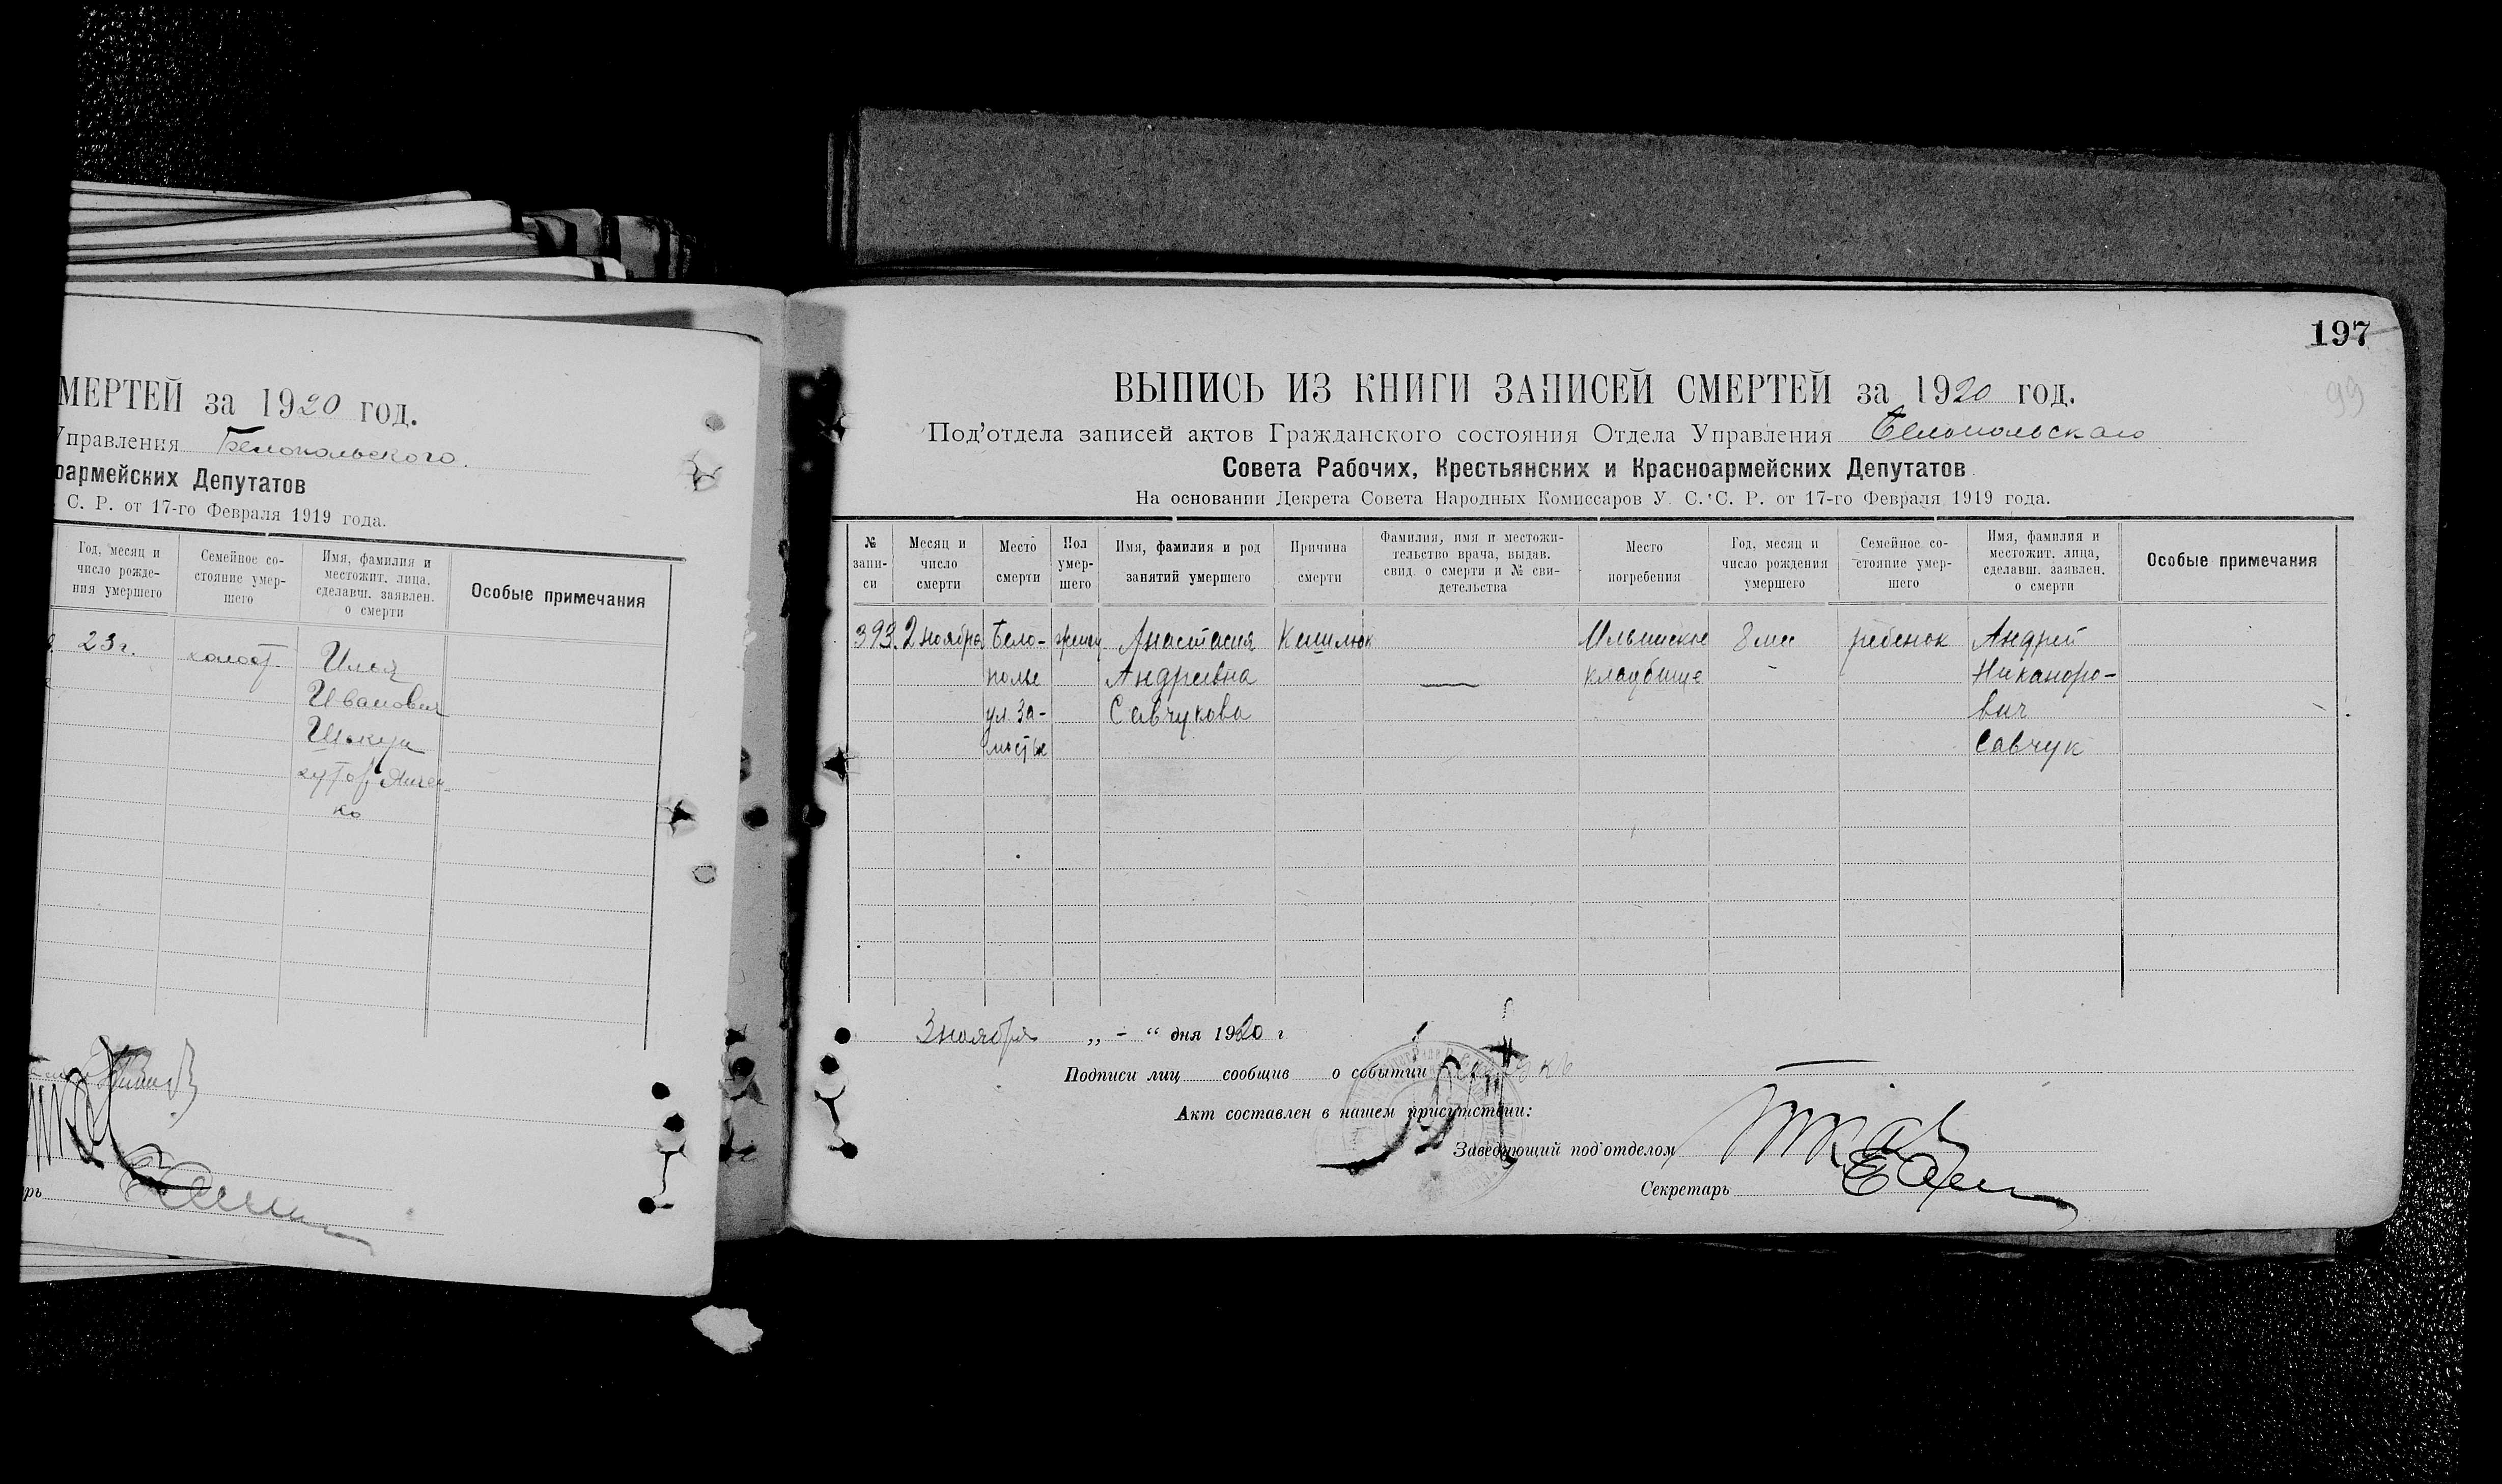 МЕРТЕЙ за 1920 год.
Управления Белопольского.
оармейских Депутатов
С. Р. от 17-го Февраля 1919 года.
Год, месяц и
число рожде-
ния умершего
Семейное со-
стояние умер-
шего
Имя, фамилия и
местожит. лица,
сделавш. заявлен.
о смерти
Особые примечания
23 г.
холост.
Илья
Иванович
хутор
ко
рь
197
99
ВЫПИСЬ ИЗ КНИГИ ЗАПИСЕЙ СМЕРТЕЙ за 1920 год.
Под'отдела записей актов Гражданского состояния Отдела Управления Белопольскаго
Совета Рабочих, Крестьянских и Красноармейских Депутатов
На основании Декрета Совета Народных Комиссаров У. С. С. Р. от 17-го Февраля 1919 года.
№
запи-
си
Месяц и
число
смерти
Место
смерти
Пол
умер-
шего
Имя, фамилия и род
занятий умершего
Причина
смерти
Фамилия, имя и местожи-
тельство врача, выдав.
свид. о смерти и № сви-
детельства
Место
погребения
Год, месяц и
число рождения
умершего
Семейное со-
стояние умер-
шего
Имя, фамилия и
местожит. лица,
сделавш. заявлен.
о смерти
Особые примечания
393.
2 ноября
Бело-
полье
ул. За-
мостье
Анастасия
Андреевна
Савчукова
Ильинское
кладбище
8 мес
ребенок
Андрей
Никаноро-
вич
Савчук
3 ноября „ - “ дня 1920 г
Подписи лиц сообщив о событии
Акт составлен в нашем присутствии:
Заведующий под'отделом
Секретарь